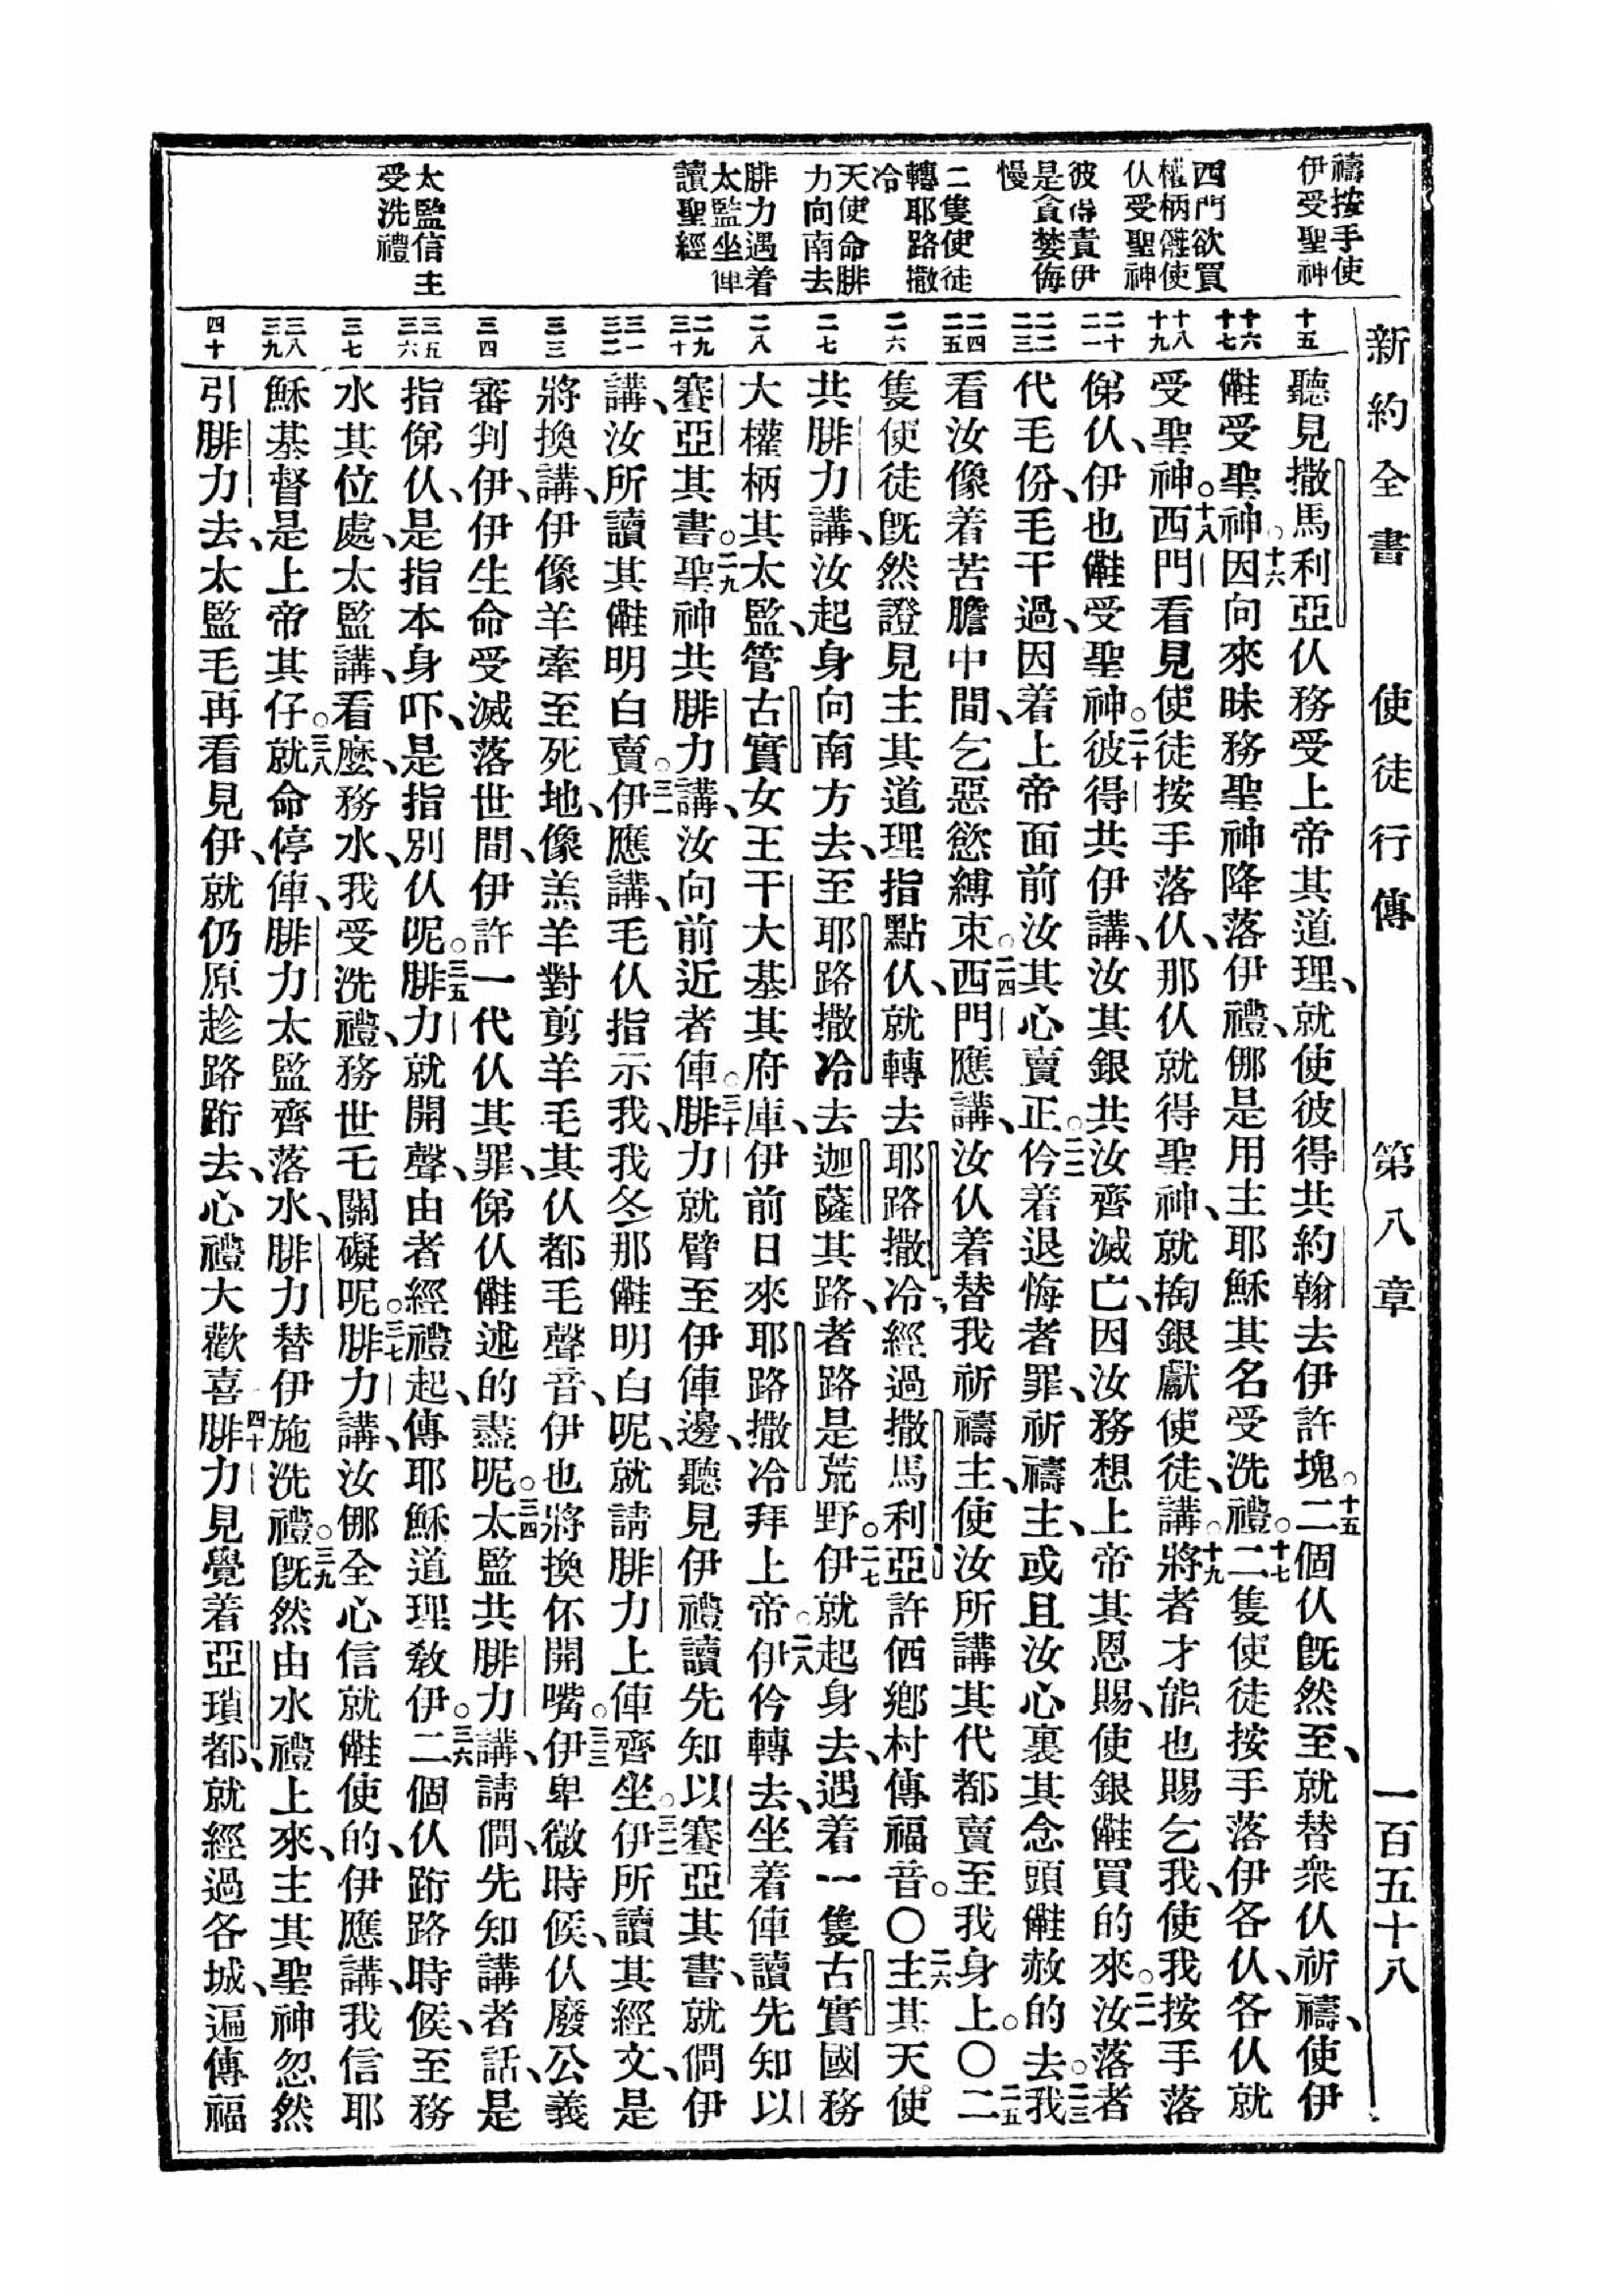 新約全書　使徒行傳　第八章　一百五十八
禱按手使
伊受聖神
西門欲買
權柄𠆧使
仫受聖神
彼得責伊
是貪婪侮
慢
二隻使徒
轉耶路撒
冷
天使命腓
力向南去
腓力遇着
太監坐俥
讀聖經
太監信主
受洗禮
十五
十六
十七
十八
十九
二十
二一
二二
二三
二四
二五
二六
二七
二八
二九
三十
三一
三二
三三
三四
三五
三六
三七
三八
三九
四十
聽見撒馬利亞仫務受上帝其道理、就使彼得共約翰去伊許塊。十五二個仫旣然至、就替衆仫祈禱、使伊
𠆧受聖神。十六因向來昧務聖神降落伊禮、㑚是用主耶穌其名受洗禮。十七二隻使徒按手落伊各仫、各仫就
受聖神。十八西門看見使徒按手落仫、那仫就得聖神、就掏銀獻使徒、講。十九將者才能也賜乞我、使我按手落
俤仫、伊也𠆧受聖神。二十彼得共伊講、汝其銀共汝齊滅亡、因汝務想上帝其恩賜、使銀𠆧買的來。二一汝落者
代毛份、毛干過、因着上帝面前汝其心賣正。二二仱着退悔者罪、祈禱主、或且汝心裏其念頭𠆧赦的去。二三我
看汝像着苦膽中間、乞惡慾縛束。二四西門應講、汝仫着替我祈禱主、使汝所講其代都賣至我身上。〇二五二
隻使徒旣然證見主其道理、指點仫、就轉去耶路撒冷、經過撒馬利亞許𠉞鄉村傳福音。〇二六主其天使
共腓力講、汝起身向南方去、至耶路撒冷去迦薩其路、者路是荒野。二七伊就起身去、遇着一隻古實國務
大權柄其太監、管古實女王干大基其府庫、伊前日來耶路撒冷拜上帝。二八伊仱轉去、坐着俥讀先知以
賽亞其書。二九聖神共腓力講、汝向前近者俥。三十腓力就躄至伊俥邊、聽見伊禮讀先知以賽亞其書、就倜伊
講、汝所讀其𠆧明白賣。三一伊應講、毛仫指示我、我冬那𠆧明白呢、就請腓力上俥齊坐。三二伊所讀其經文、是
將換講、伊像羊牽至死地、像羔羊對剪羊毛其仫都毛聲音、伊也將換伓開嘴。三三伊卑微時候、仫廢公義
審判伊、伊生命受滅落世間、伊許一代仫其罪、俤仫𠆧述的盡呢。三四太監共腓力講、請倜、先知講者話、是
指俤仫、是指本身吓、是指別仫呢。三五腓力就開聲、由者經禮起、傳耶穌道理敎伊。三六二個仫跡路時候、至務
水其位處、太監講、看麼、務水、我受洗禮、務世乇關礙呢。三七腓力講、汝㑚全心信就𠆧使的、伊應講、我信耶
穌基督是上帝其仔。三八就命停俥、腓力太監齊落水、腓力替伊施洗禮。三九旣然由水禮上來、主其聖神忽然
引腓力去、太監毛再看見伊、就仍原趁路跡去、心禮大歡喜。四十腓力見覺着亞瑣都、就經過各城、遍傳福